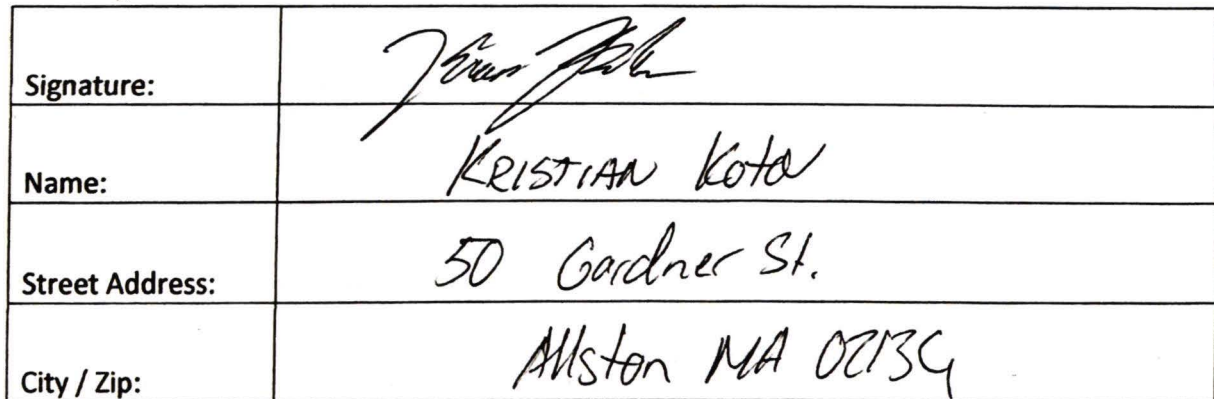 Signature:
Name: KRISTIAN Kotov
Street Address: 50 Gardner St.
City / Zip: Allston MA 02134